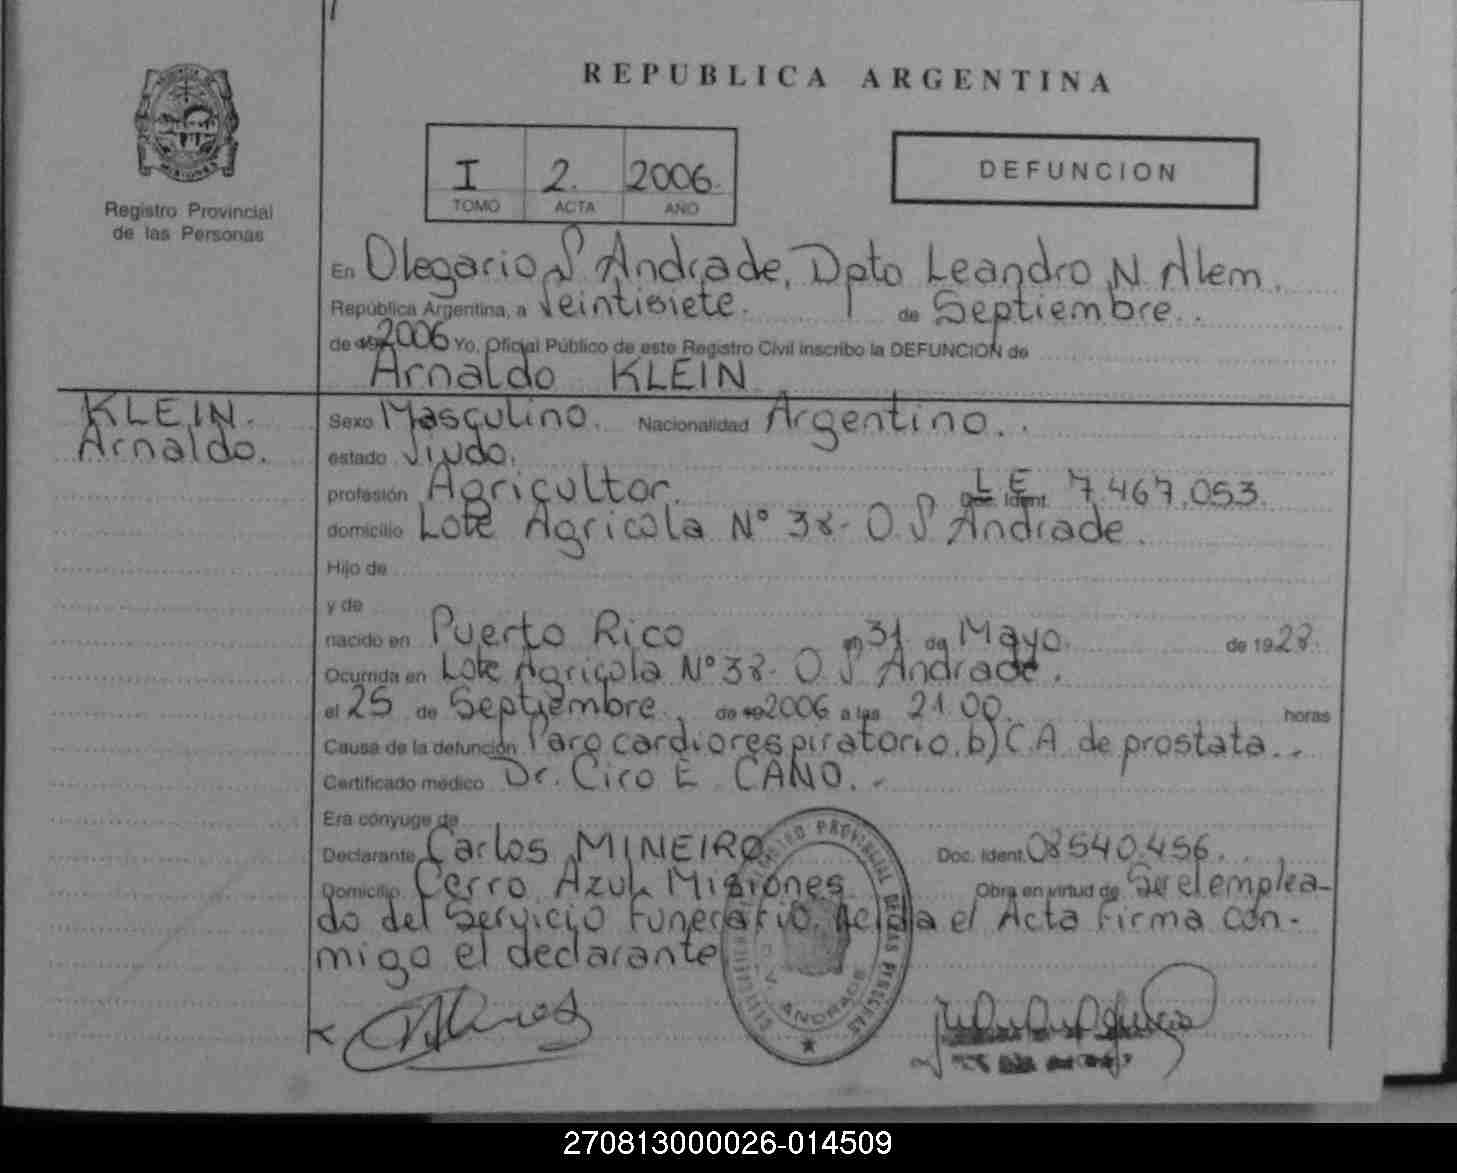 REPUBLICA ARGENTINA
I 2. 2006.
TOMO ACTA AÑO
DEFUNCION
MISIONES
Registro Provincial
de las Personas
En Olegario V Andrade, Dpto Leandro N. Alem.
República Argentina, a Veintisiete. de Septiembre..
de 19 2006 Yo, Oficial Público de este Registro Civil inscribo la DEFUNCION de
Arnaldo KLEIN
KLEIN.
Arnaldo.
Sexo Masculino. Nacionalidad Argentino..
estado Viudo.
profesión Agricultor. Doc. Ident. L E 7.467.053.
domicilio Lote Agricola N° 38- O. V Andrade.
Hijo de
y de
nacido en Puerto Rico en 31 de Mayo. de 1928.
Ocurrida en Lote Agricola N° 38- O V Andrade.
el 25 de Septiembre. de 19 2006 a las 21.00. horas
Causa de la defunción Paro cardiorespiratorio. b) C.A. de prostata..
Certificado médico Dr. Ciro E. CANO..
Era cónyuge de
Declarante Carlos MINEIRO Doc. Ident. 08540.456..
Domicilio Cerro Azul Misiones Obra en virtud de Ser el emplea-
do del Servicio Funerario. Leida el Acta Firma con-
migo el declarante
REGISTRO PROVINCIAL DE LAS PERSONAS
O. V. ANDRADE
270813000026-014509